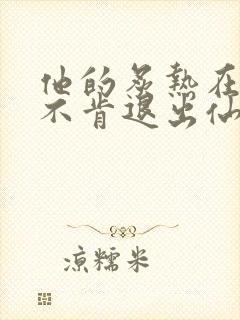 他的炙热在
不肯退出仙
凉糯米